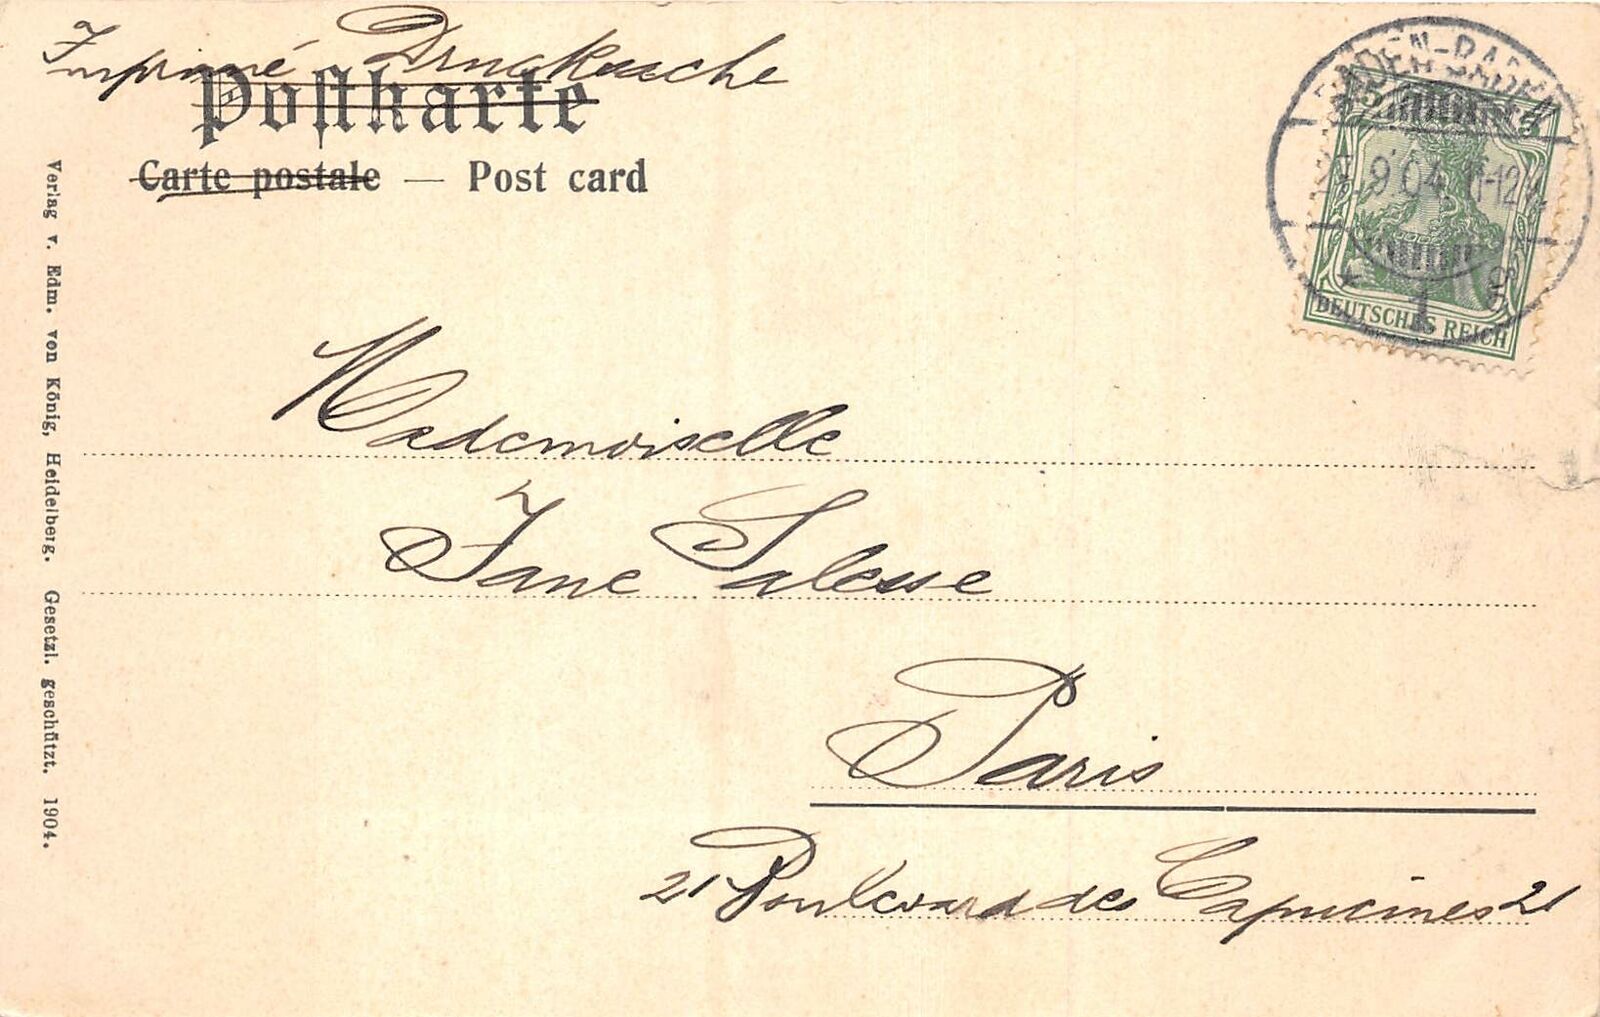 Imprimé Drucksache
Postkarte
Carte postale — Post card
BADEN-BADEN
9 04
1
5 5
DEUTSCHES REICH
Mademoiselle
Jane Salesse
Paris
21 Boulevard des Capucines 21
Verlag v. Edm. von König, Heidelberg. Gesetzl. geschützt. 1904.